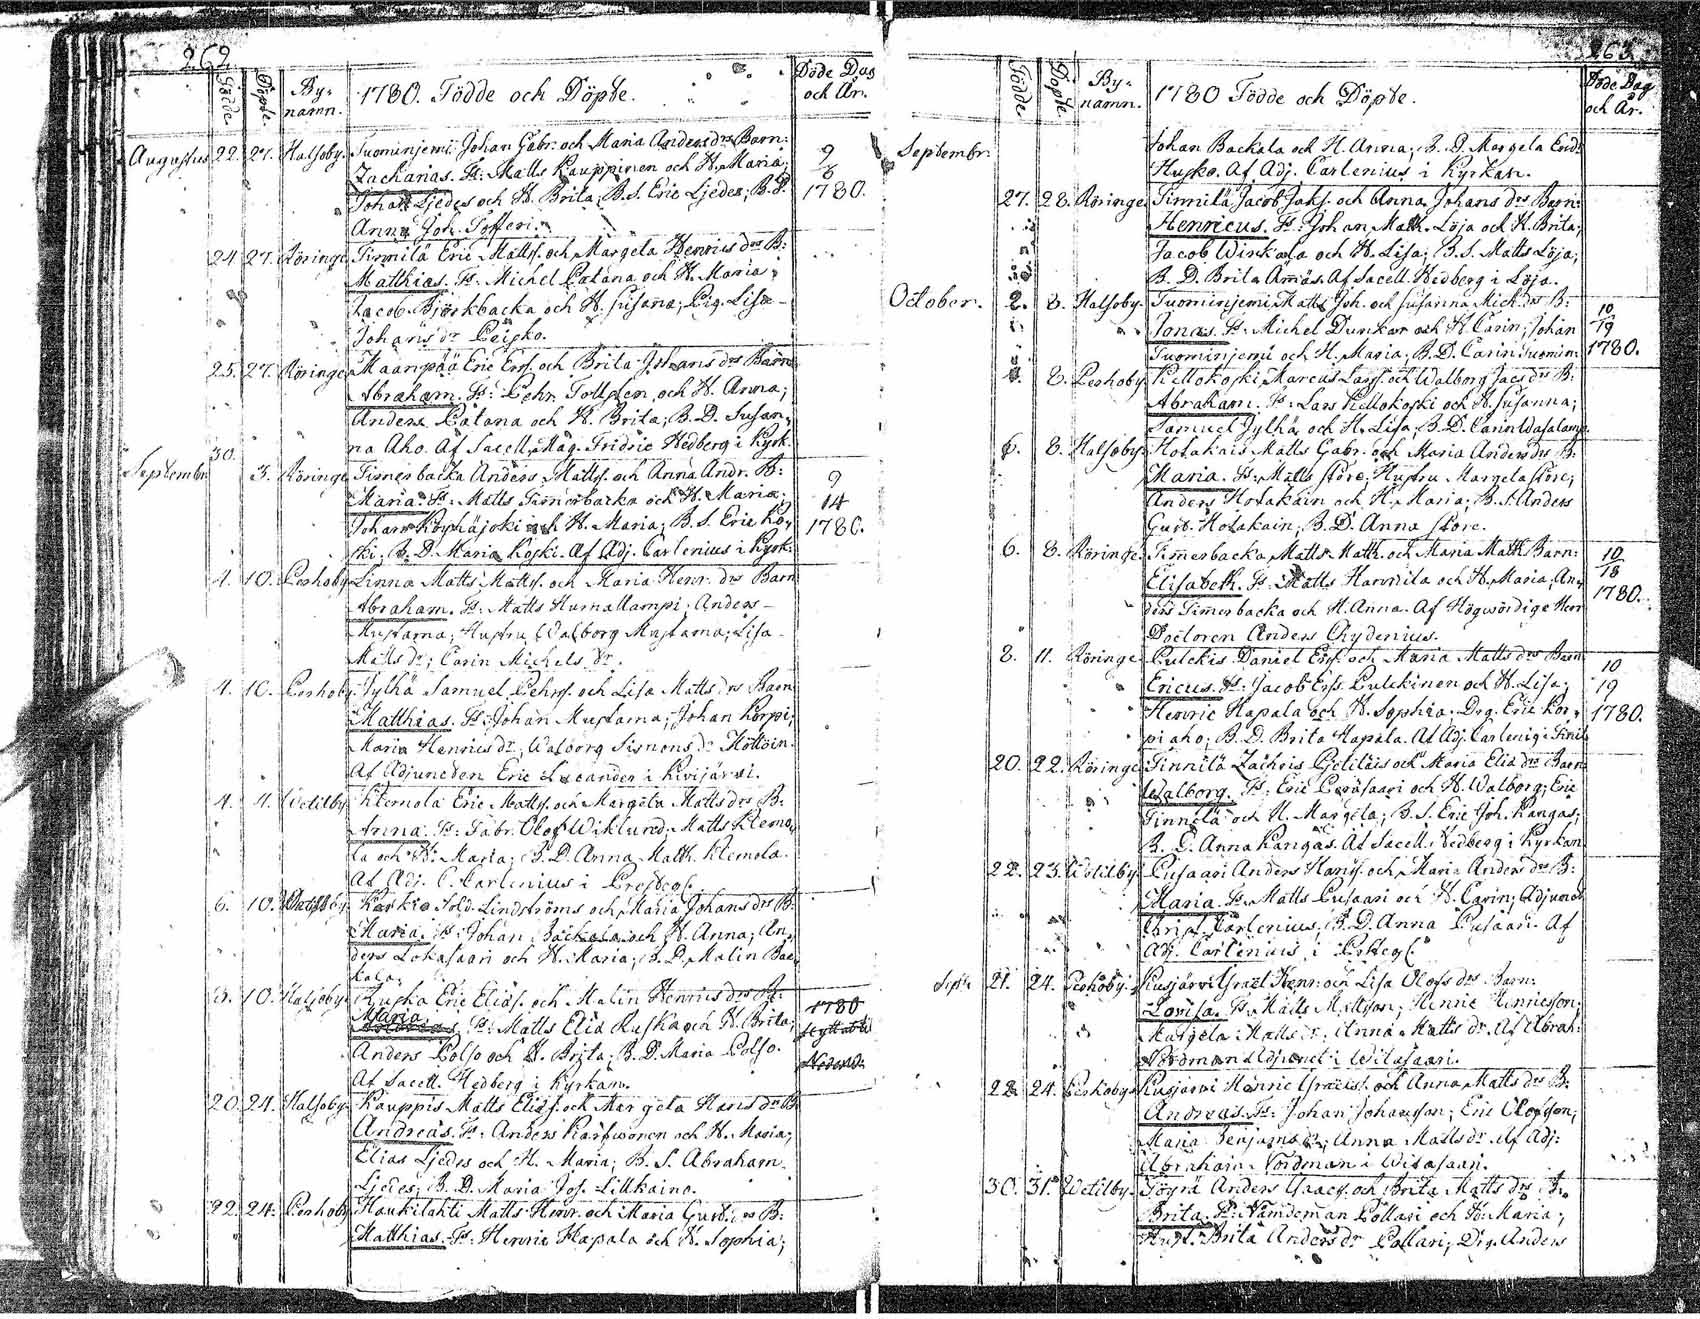 262
Födde. Döpte. By-namn. 1780. Födde och Döpte. Döde Dag och År.
Augustus 22. 27. Halsoby. Tuominjemi Johan Gabr. och Maria Anders drs Barn:
Zackarias. Fs: Matts Kauppinen och H. Maria;
Johan Ljedes och H. Brita; B.S. Eric Ljedes; B.D.
Anna Joh. Tofferi.
9/6 1780.
24 27. Röringe Finnilä Eric Mattss. och Margeta Henrics drs B:
Matthias. Fs: Michel Patana och H. Maria;
Jacob Björkbacka och H. Susana; Pig. Lisa
Johans dr Peisko.
25. 27. Röringe Maanpää Eric Erss. och Brita Johans drs Barn
Abraham. Fs: Pehr Tollpen och H. Anna;
Anders Patana och H. Brita; B.D. Susan-
na Aho. Af Sacell. Mag. Fridric Hedberg i Kyrk.
Septembr 30. 3. Röringe Timerbacka Anders Mattss. och Anna Andr. B:
Maria. Fs: Matts Timerbacka och H. Maria;
Johan Köyhäjoki och H. Maria; B.S. Eric Ko-
ski; B.D. Maria Koski. Af Adj. Carlenius i Kyrk.
9 14 1780.
4. 10. Perhoby Linna Matts Mattss. och Maria Henr. drs Barn
Abraham. Fs: Matts Humallampi; Anders
Mustama; Hustru Walborg Mustama; Lisa
Matts dr; Carin Michels dr.
4. 10. Perhoby Jylhä Samuel Pehrss. och Lisa Matts drs Barn
Matthias. Fs: Johan Mustama; Johan Korpi;
Maria Henrics dr; Walborg Simons dr Höttöin
Af Adjuncten Eric Lucander i Kivijärvi.
4. 4. Wetilby Klemola Eric Mattss. och Margeta Matts drs B:
Anna. Fs: Fabr. Olof Wiklund; Matts Klemo-
la och H: Maria; B.D. Anna Matth. Klemola.
Af Adj. C. Carlenius i Prestegl.
6. 10. Kärkis Sold. Lindströms och Maria Johans drs B.
Maria. Fs: Johan Backala och H. Anna; An-
ders Lokasaari och H. Maria; B.D. Malin Bac-
kala.
3. 10. Halsoby Huska Eric Eliæss. och Malin Henrics drs B:
Maria. Fs: Matts Eliæ Ruska och H. Brita;
Anders Polso och H. Brita; B.D. Maria Polso.
Af Sacell. Hedberg i Kyrkan.
1780
20. 24. Halsoby Kauppis Matts Eliæss. och Margeta Hans drs B
Andreas. Fs: Anders Kartwonen och H. Maria;
Elias Ljedes och H. Maria; B.S. Abraham
Ljedes; B.D. Maria Jos. Lillkaino.
22. 24. Perhoby Haukilahti Matts Henr. och Maria Gust. drs B:
Matthias. Fs: Henric Hapala och H. Sophia;
263.
Födde Döpte By-namn. 1780 Födde och Döpte. Döde Dag och År.
Septembr. Johan Backala och H. Anna; B.D. Margeta Erics
Husko. Af Adj. Carlenius i Kyrkan.
27. 28. Röringe Finnilä Jacob Jakss. och Anna Johans drs Barn:
Henricus. Fs: Johan Math. Löja och H. Brita;
Jacob Winkala och H. Lisa; B.S. Matts Löja;
B.D. Brita Amäs. Af Sacell. Hedberg i Löja.
October. 2. 8. Halsoby. Tuominjemi Matts Joh. och Susanna Mich. drs B:
Jonas. Fs: Michel Dunkar och H. Carin; Johan
Tuominjemi och H. Maria; B.D. Carin Tuomin:
10/19 1780.
8. Perhoby. Kellokoski Marcus Larss. och Walborg Jacs drs B:
Abraham. Fs: Lars Kellokoski och H. Susanna;
Samuel Jylhä och H. Lisa; B.D. Carin Wasalamp
6. 8. Halsoby. Hotakais Matts Gabr. och Maria Anders drs B:
Maria. Fs: Matts Store; Hustru Margeta Store;
Anders Hotakain och H. Maria; B.S. Anders
Gust. Hotakain; B.D. Anna Store.
6. 8. Röringe. Timerbacka Matts Math. och Maria Matth Barn:
Elisabeth. Fs: Matts Harwila och H. Maria; An-
ders Timerbacka och H. Anna. Af Högwördige Herr
Doctoren Anders Chydenius.
10/18 1780.
8. 11. Röringe Pulckis Daniel Erss. och Maria Matts drs Barn
Ericus. Fs: Jacob Erss. Pulckinen och H. Lisa;
Henric Hapala och H. Sophia; Drg. Eric Kor-
piaho; B.D. Brita Hapala. Af Adj. Carlenig i Finil
10 19 1780.
20. 22. Röringe Finnilä Zachris Pjetiläis och Maria Eliæ drs Barn
Walborg. Fs: Eric Peräsaari och H. Walborg; Eric
Finnilä och H. Margeta; B.S. Eric Joh. Kangas;
B.D. Anna Kangas. Af Sacell. Hedberg i Kyrkan
22. 23. Wetilby. Pusaari Anders Hanss. och Maria Anders drs B:
Maria. Fs: Matts Pusaari och H. Carin; Adjunct
Christ. Carlenius; B.D. Anna Pusaari. Af
Adj. Carlenius i Prestegl.
Sept. 21. 24. Perhoby. Kusjärvi Israel Henr. och Lisa Olofs drs Barn:
Lovisa. Fs: Matts Mattsson; Henric Henricsson;
Margeta Matts dr; Anna Matts dr. Af Abrah:
Nordman Adjunct i Witasaari.
22. 24. Perhoby. Kusjärvi Henric Israelss. och Anna Matts drs B:
Andreas. Fs: Johan Johansson; Eric Olofsson;
Maria Benjams dr; Anna Matts dr. Af Adj:
Abraham Nordman i Witasaari.
30. 31. Wetilby. Töyrä Anders Isaacss. och Brita Matts drs B.
Brita. Fs: Nämdeman Pollari och H. Maria;
Hust. Brita Anders dr Pollari; Drg. Anders